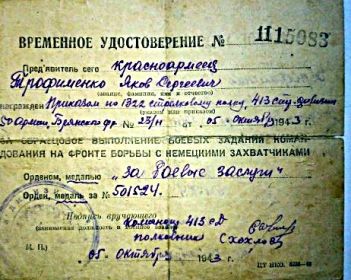 ВРЕМЕННОЕ УДОСТОВЕРЕНИЕ № 1115083
Пред'явитель сего красноармеец
Трофименко Яков Сергеевич
(звание, фамилия, имя и отчество)
награжден Приказом по 1322 стрелковому полку, 413 стр. дивизии
50 Армии Брянского фр. № 23/н от "05" октября 1943 г.
ЗА ОБРАЗЦОВОЕ ВЫПОЛНЕНИЕ БОЕВЫХ ЗАДАНИЙ КОМАН-
ДОВАНИЯ НА ФРОНТЕ БОРЬБЫ С НЕМЕЦКИМИ ЗАХВАТЧИКАМИ
Орденом, медалью „За боевые заслуги"
Орден, медаль за № 501524.
Подпись вручающего
командир 413 сд
полковник
М. П.
"05" октября 1943 г.